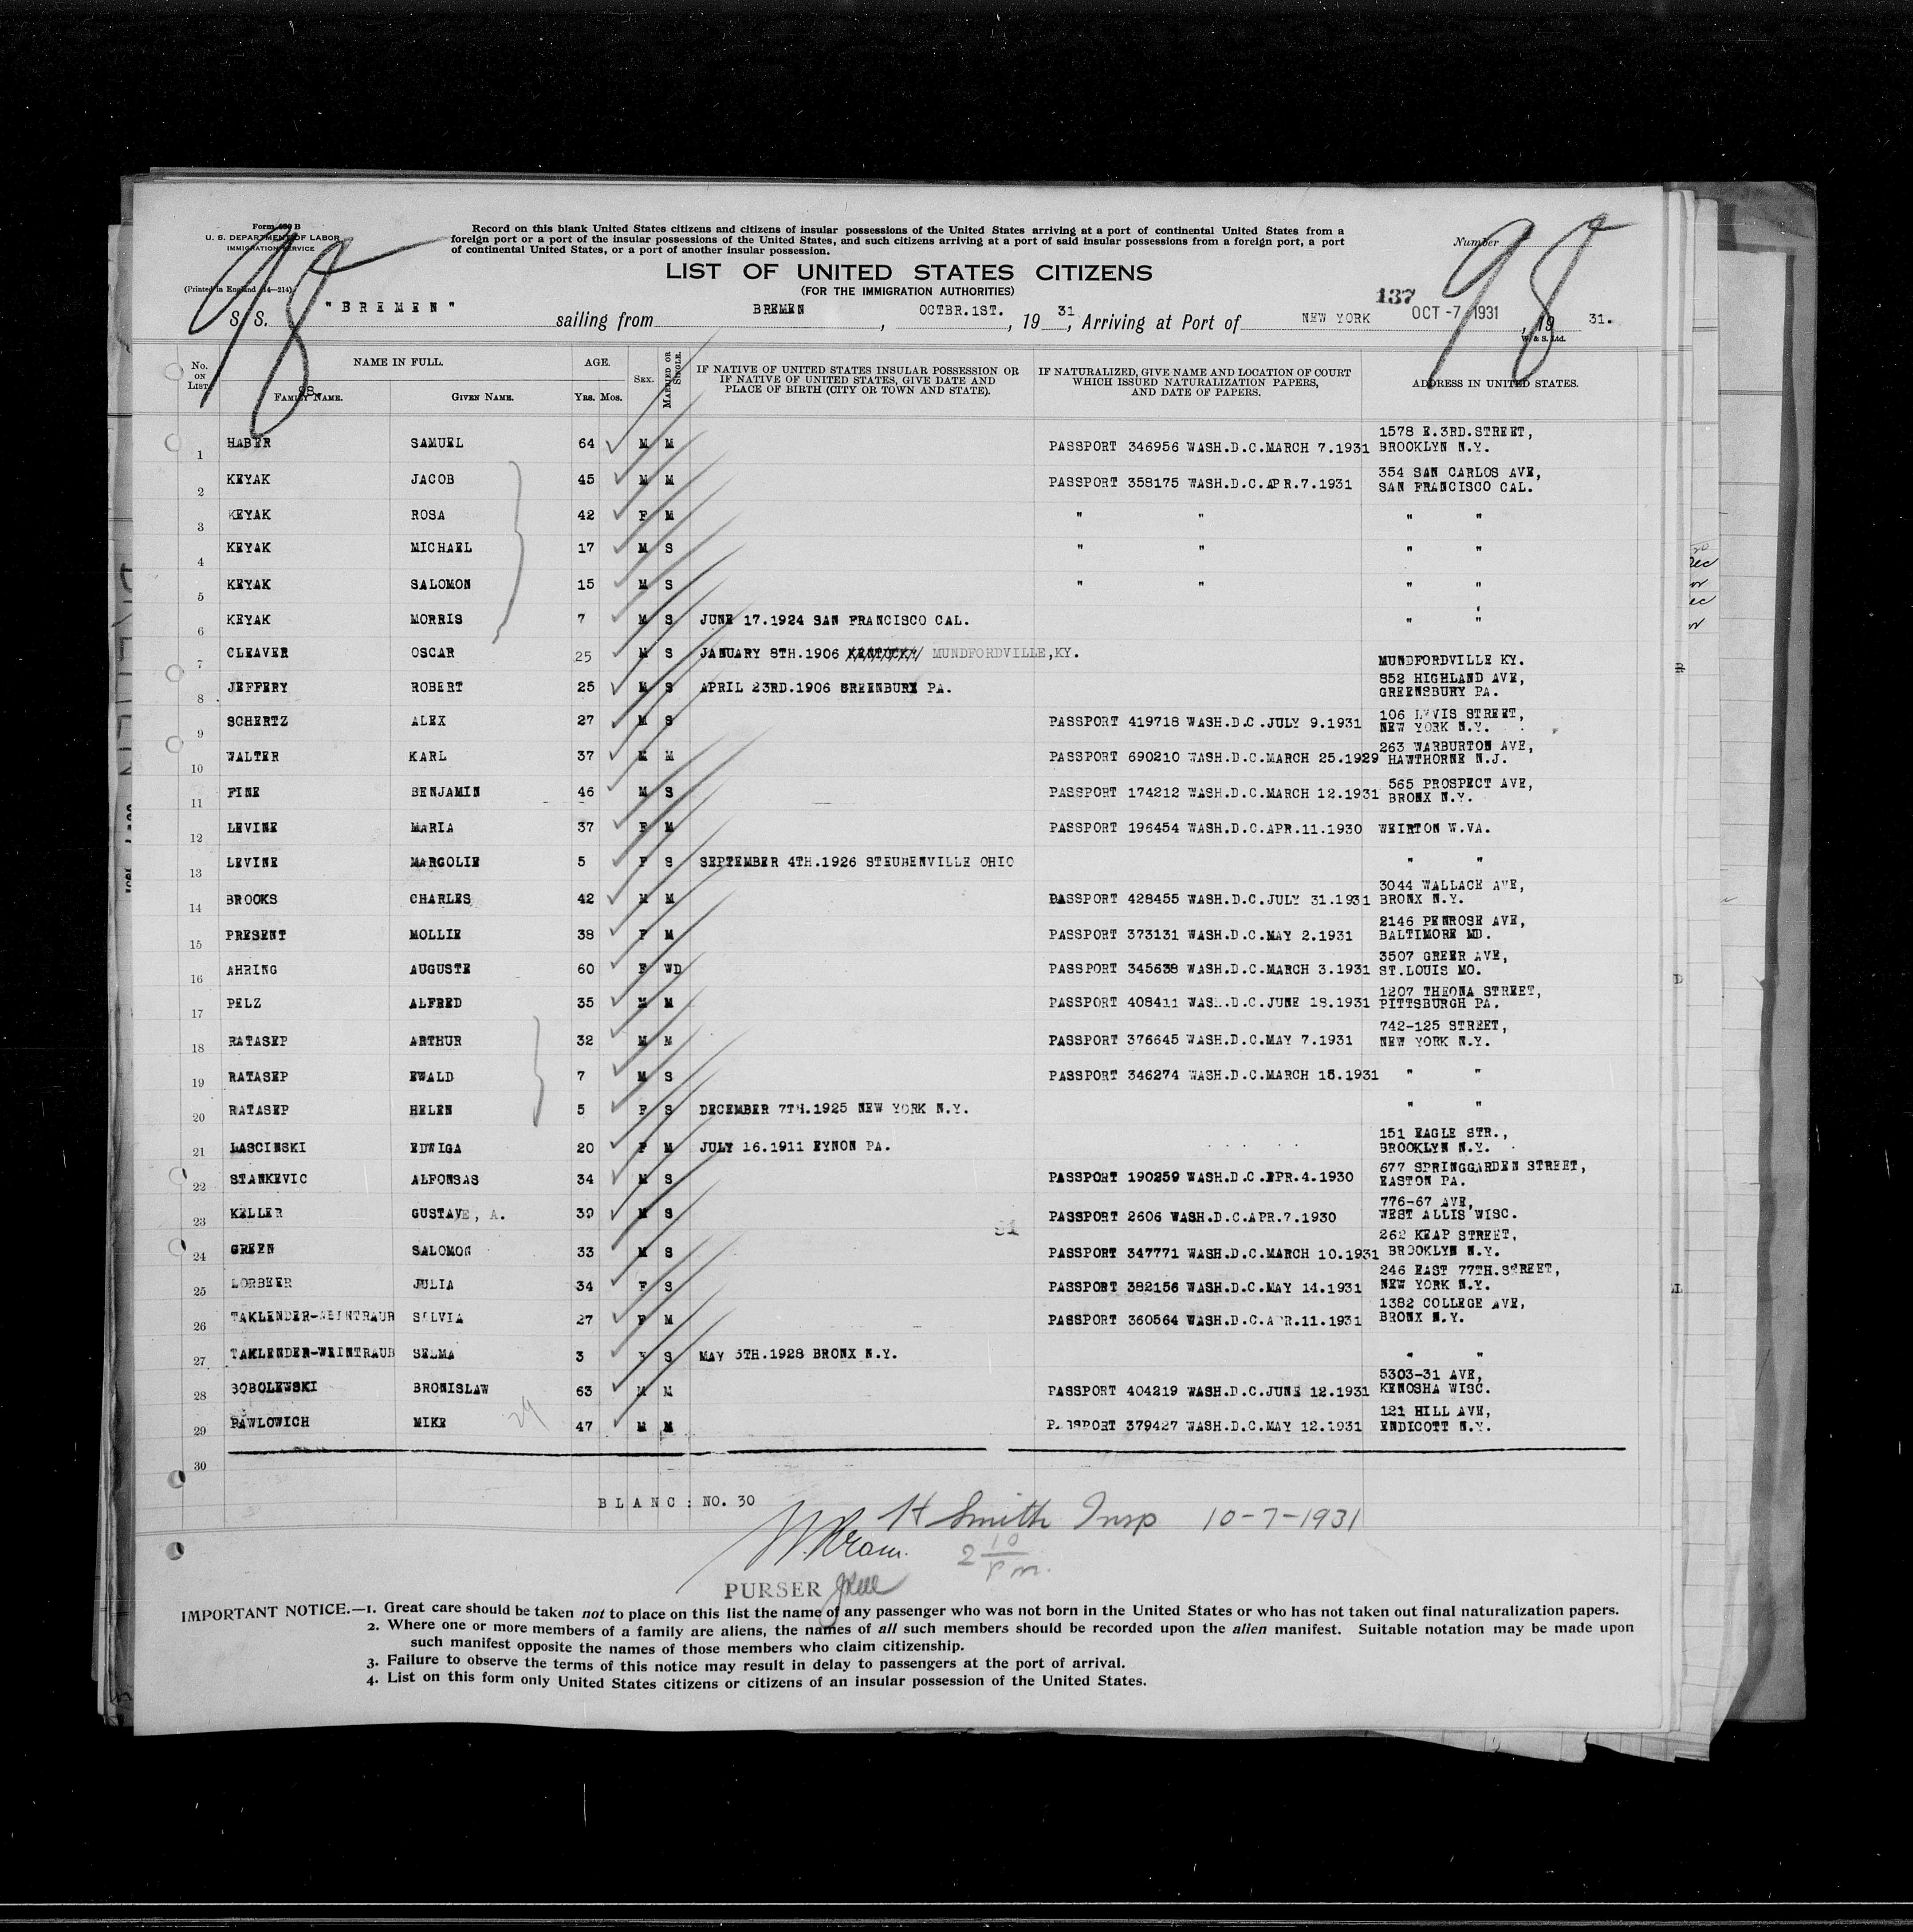 Form 630 B
U. S. DEPARTMENT OF LABOR
IMMIGRATION SERVICE
(Printed in England 14—214)
98
Record on this blank United States citizens and citizens of insular possessions of the United States arriving at a port of continental United States from a
foreign port or a port of the insular possessions of the United States, and such citizens arriving at a port of said insular possessions from a foreign port, a port
of continental United States, or a port of another insular possession.
Number 98
LIST OF UNITED STATES CITIZENS
(FOR THE IMMIGRATION AUTHORITIES)
137
S. S. "BREMEN" sailing from BREMEN, OCTBR.1ST., 19 31, Arriving at Port of NEW YORK OCT -7 1931, 19 31.
W. & S. Ltd.
No. ON LIST. NAME IN FULL. AGE. SEX. MARRIED OR SINGLE. IF NATIVE OF UNITED STATES INSULAR POSSESSION OR IF NATIVE OF UNITED STATES, GIVE DATE AND PLACE OF BIRTH (CITY OR TOWN AND STATE). IF NATURALIZED, GIVE NAME AND LOCATION OF COURT WHICH ISSUED NATURALIZATION PAPERS, AND DATE OF PAPERS. ADDRESS IN UNITED STATES.
98
FAMILY NAME. GIVEN NAME. YRS. MOS.
1 HABER SAMUEL 64 M M PASSPORT 346956 WASH.D.C.MARCH 7.1931 1578 E.3RD.STREET, BROOKLYN N.Y.
2 KEYAK JACOB 45 M M PASSPORT 358175 WASH.D.C.APR.7.1931 354 SAN CARLOS AVE, SAN FRANCISCO CAL.
3 KEYAK ROSA 42 F M " " " "
4 KEYAK MICHAEL 17 M S " " " "
5 KEYAK SALOMON 15 M S " " " "
6 KEYAK MORRIS 7 M S JUNE 17.1924 SAN FRANCISCO CAL. " "
7 CLEAVER OSCAR 25 M S JANUARY 8TH.1906 KENTUCKY MUNDFORDVILLE,KY. MUNDFORDVILLE KY.
8 JEFFERY ROBERT 25 M S APRIL 23RD.1906 GREENBURY PA. 852 HIGHLAND AVE, GREENSBURY PA.
9 SCHERTZ ALEX 27 M S PASSPORT 419718 WASH.D.C.JULY 9.1931 106 LEVIS STREET, NEW YORK N.Y.
10 WALTER KARL 37 M M PASSPORT 690210 WASH.D.C.MARCH 25.1929 263 WARBURTON AVE, HAWTHORNE N.J.
11 FINE BENJAMIN 46 M S PASSPORT 174212 WASH.D.C.MARCH 12.1931 565 PROSPECT AVE, BRONX N.Y.
12 LEVINE MARIA 37 F M PASSPORT 196454 WASH.D.C.APR.11.1930 WEIRTON W.VA.
13 LEVINE MARGOLIE 5 F S SEPTEMBER 4TH.1926 STEUBENVILLE OHIO " "
14 BROOKS CHARLES 42 M M PASSPORT 428455 WASH.D.C.JULY 31.1931 3044 WALLACE AVE, BRONX N.Y.
15 PRESENT MOLLIE 38 F M PASSPORT 373131 WASH.D.C.MAY 2.1931 2146 PENROSE AVE, BALTIMORE MD.
16 AHRING AUGUSTE 60 F WD PASSPORT 345638 WASH.D.C.MARCH 3.1931 3507 GREER AVE, ST.LOUIS MO.
17 PELZ ALFRED 35 M M PASSPORT 408411 WASH.D.C.JUNE 18.1931 1207 THEONA STREET, PITTSBURGH PA.
18 RATASEP ARTHUR 32 M M PASSPORT 376645 WASH.D.C.MAY 7.1931 742-125 STREET, NEW YORK N.Y.
19 RATASEP EWALD 7 M S PASSPORT 346274 WASH.D.C.MARCH 15.1931 " "
20 RATASEP HELEN 5 F S DECEMBER 7TH.1925 NEW YORK N.Y. " "
21 LASCINSKI EDWIGA 20 F M JULY 16.1911 EYNON PA. 151 EAGLE STR., BROOKLYN N.Y.
22 STANKEVIC ALFONSAS 34 M S PASSPORT 190259 WASH.D.C.EPR.4.1930 677 SPRINGGARDEN STREET, EASTON PA.
23 KELLER GUSTAVE, A. 39 M S PASSPORT 2606 WASH.D.C.APR.7.1930 776-67 AVE, WEST ALLIS WISC.
24 GREEN SALOMON 33 M S PASSPORT 347771 WASH.D.C.MARCH 10.1931 262 KEAP STREET, BROOKLYN N.Y.
25 LORBEER JULIA 34 F S PASSPORT 382156 WASH.D.C.MAY 14.1931 246 EAST 77TH.STREET, NEW YORK N.Y.
26 TAKLENDER-WEINTRAUB SILVIA 27 F M PASSPORT 360564 WASH.D.C.APR.11.1931 1382 COLLEGE AVE, BRONX N.Y.
27 TAKLENDER-WEINTRAUB SELMA 3 F S MAY 5TH.1928 BRONX N.Y. " "
28 SOBOLEWSKI BRONISLAW 63 M M PASSPORT 404219 WASH.D.C.JUNE 12.1931 5303-31 AVE, KENOSHA WISC.
29 PAWLOWICH MIKE 29 47 M M PASSPORT 379427 WASH.D.C.MAY 12.1931 121 HILL AVE, ENDICOTT N.Y.
30
BLANC: NO. 30
H Smith Insp 10-7-1931
2 10 Pm.
PURSER
IMPORTANT NOTICE.—1. Great care should be taken not to place on this list the name of any passenger who was not born in the United States or who has not taken out final naturalization papers.
2. Where one or more members of a family are aliens, the names of all such members should be recorded upon the alien manifest. Suitable notation may be made upon
such manifest opposite the names of those members who claim citizenship.
3. Failure to observe the terms of this notice may result in delay to passengers at the port of arrival.
4. List on this form only United States citizens or citizens of an insular possession of the United States.